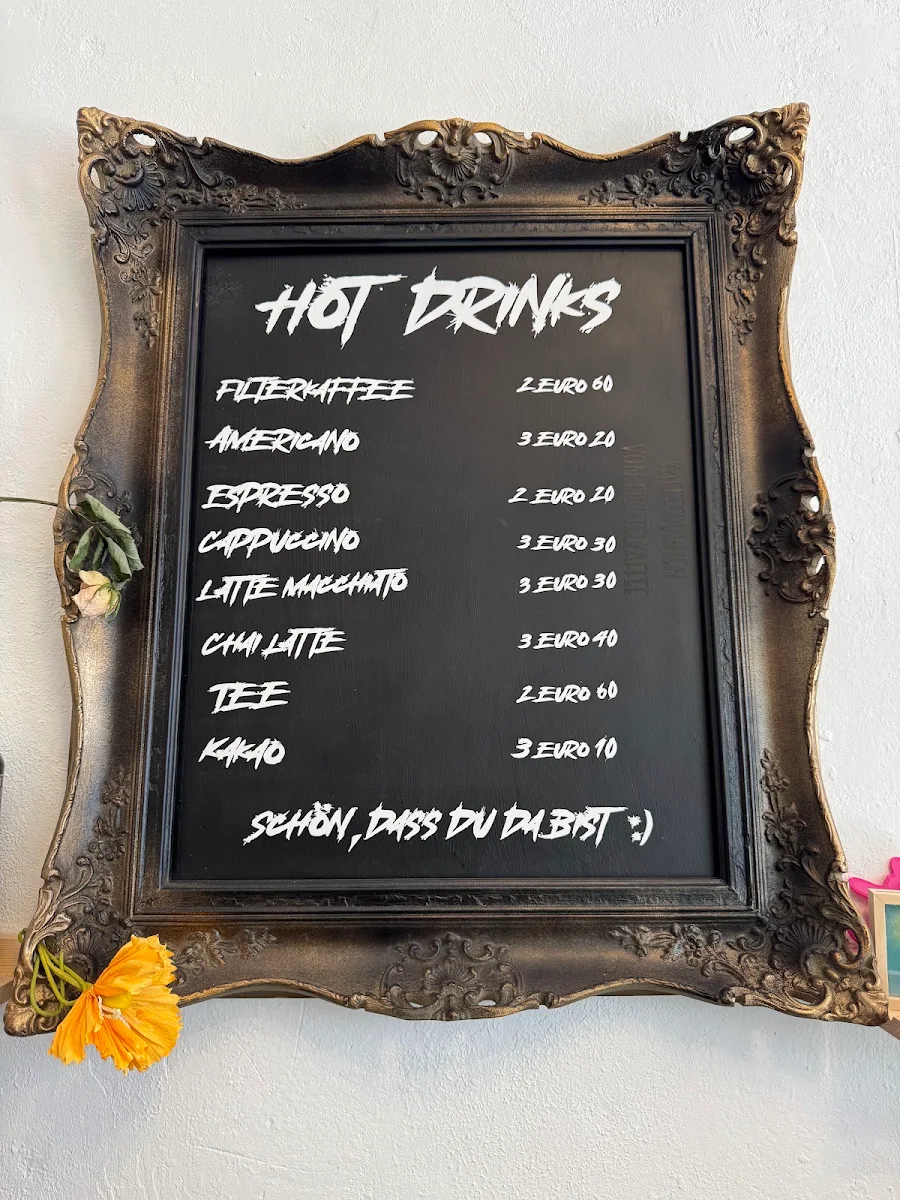 HOT DRINKS
FILTERKAFFEE 2 EURO 60
AMERICANO 3 EURO 20
ESPRESSO 2 EURO 20
CAPPUCCINO 3 EURO 30
LATTE MACCHIATO 3 EURO 30
CHAI LATTE 3 EURO 40
TEE 2 EURO 60
KAKAO 3 EURO 10
SCHÖN, DASS DU DA BIST :)